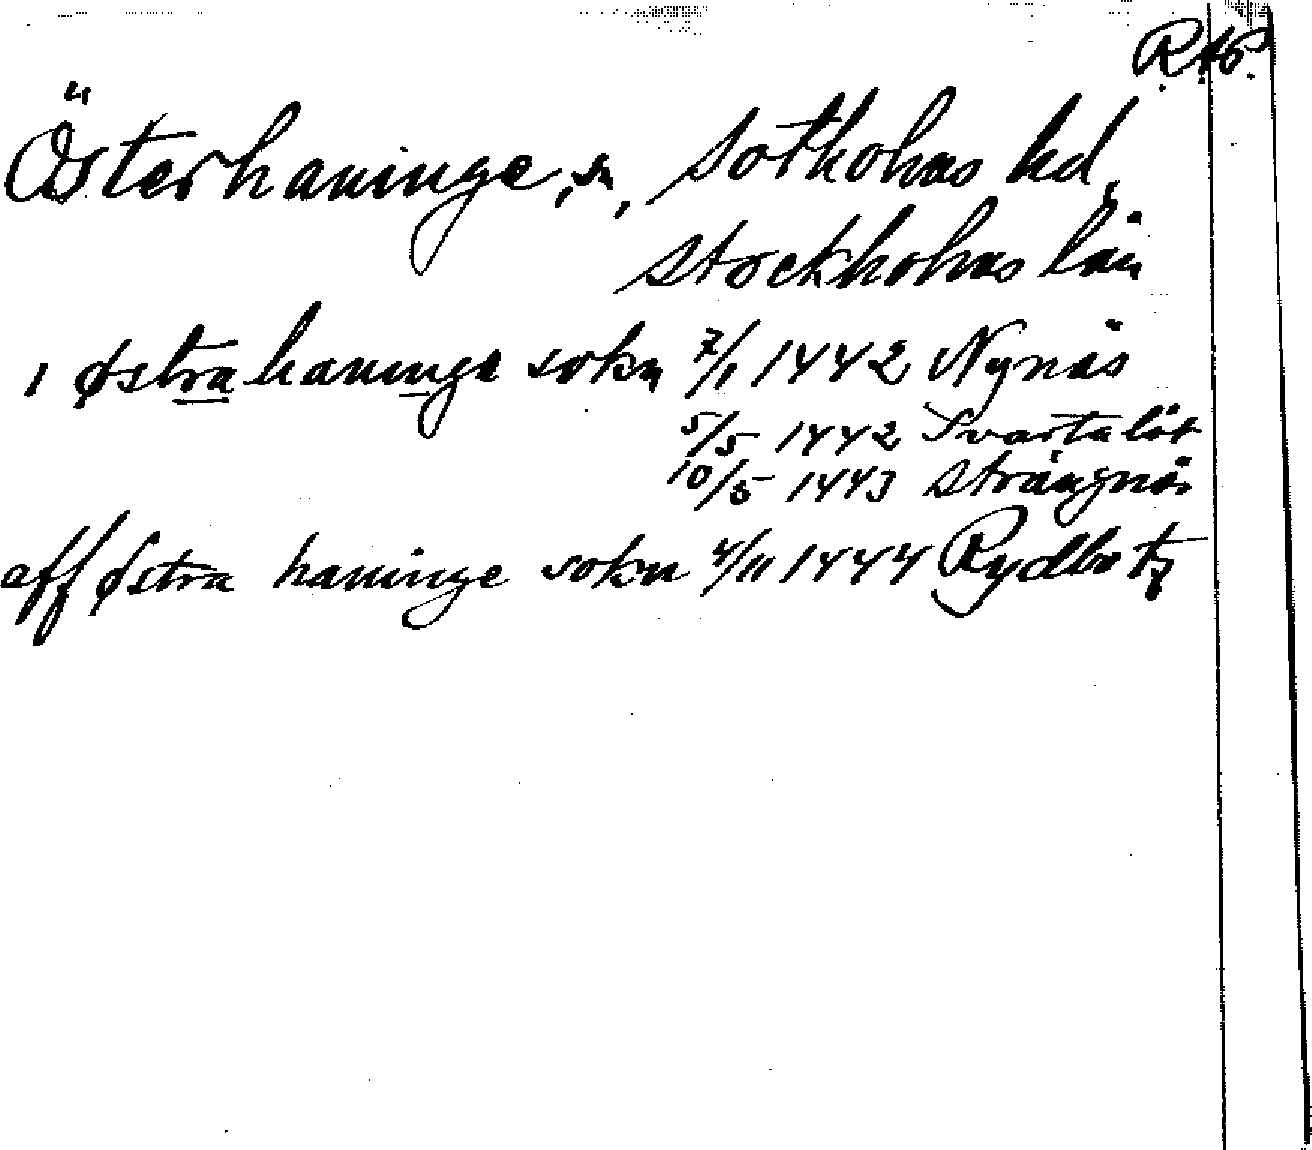 Österhaninge, sn, Sotholms hd,
Stockholms län
i østrahaninge sokn 7/1 1442 Nynäs
5/5 1442 Svartalöt
10/5 1443 Strängnäs
aff østra haninge sokn 4/11 1444 Rydbo